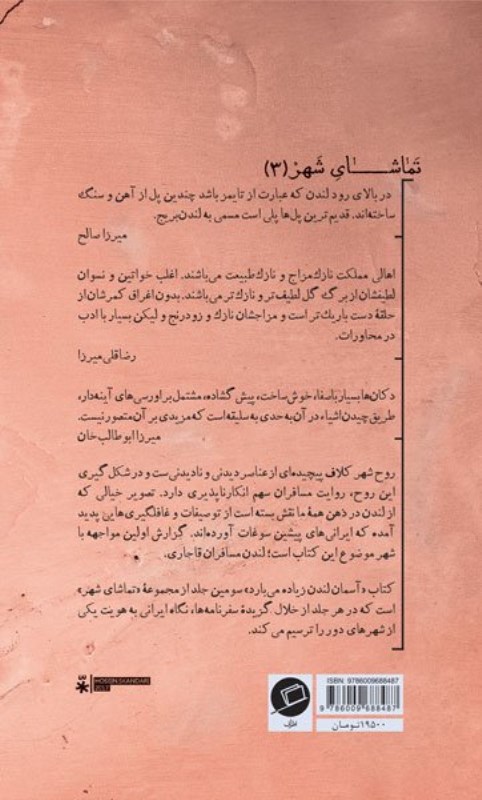 تَماشــــای شَهرْ (۳)
در بالای رود لندن که عبارت از تایمز باشد چندین پل از آهن و سنگ
ساخته‌اند. قدیم‌ترین پل‌ها پلی است مسمی به لندن‌بریج.
میرزا صالح
اهالی مملکت نازك‌مزاج و نازك‌طبیعت می‌باشند. اغلب خواتین و نسوان
لطیفشان از برگ گل لطیف‌تر و نازك‌تر می‌باشند. بدون اغراق کمرشان از
حلقهٔ دست باریك‌تر است و مزاجشان نازك و زودرنج و لیکن بسیار با ادب
در محاورات.
رضاقلی‌میرزا
دکان‌ها بسیار باصفا، خوش‌ساخت، پیش گشاده، مشتمل بر اورسی‌های آینه‌دار،
طریق چیدن اشیاء در آن به حدی به سلیقه است که مزیدی بر آن متصور نیست.
میرزا ابوطالب‌خان
روح شهر کلاف پیچیده‌ای از عناصر دیدنی و نادیدنی‌ست و در شکل‌گیری
این روح، روایت مسافران سهم انکارناپذیری دارد. تصویر خیالی که
از لندن در ذهن همهٔ ما نقش بسته است از توصیفات و غافلگیری‌هایی پدید
آمده که ایرانی‌های پیشین سوغات آورده‌اند. گزارش اولین مواجهه با
شهر موضوع این کتاب است؛ لندن مسافران قاجاری.
کتاب «آسمان لندن زیاده می‌بارد» سومین جلد از مجموعهٔ «تماشای شهر»
است که در هر جلد از خلال گزیدهٔ سفرنامه‌ها، نگاه ایرانی به هویت یکی
از شهرهای دور را ترسیم می‌کند.
HOSEIN.SKANDARI
2017
اطراف
ISBN: 9786009688487
9 786009 688487
۱۹۵۰۰ تومان